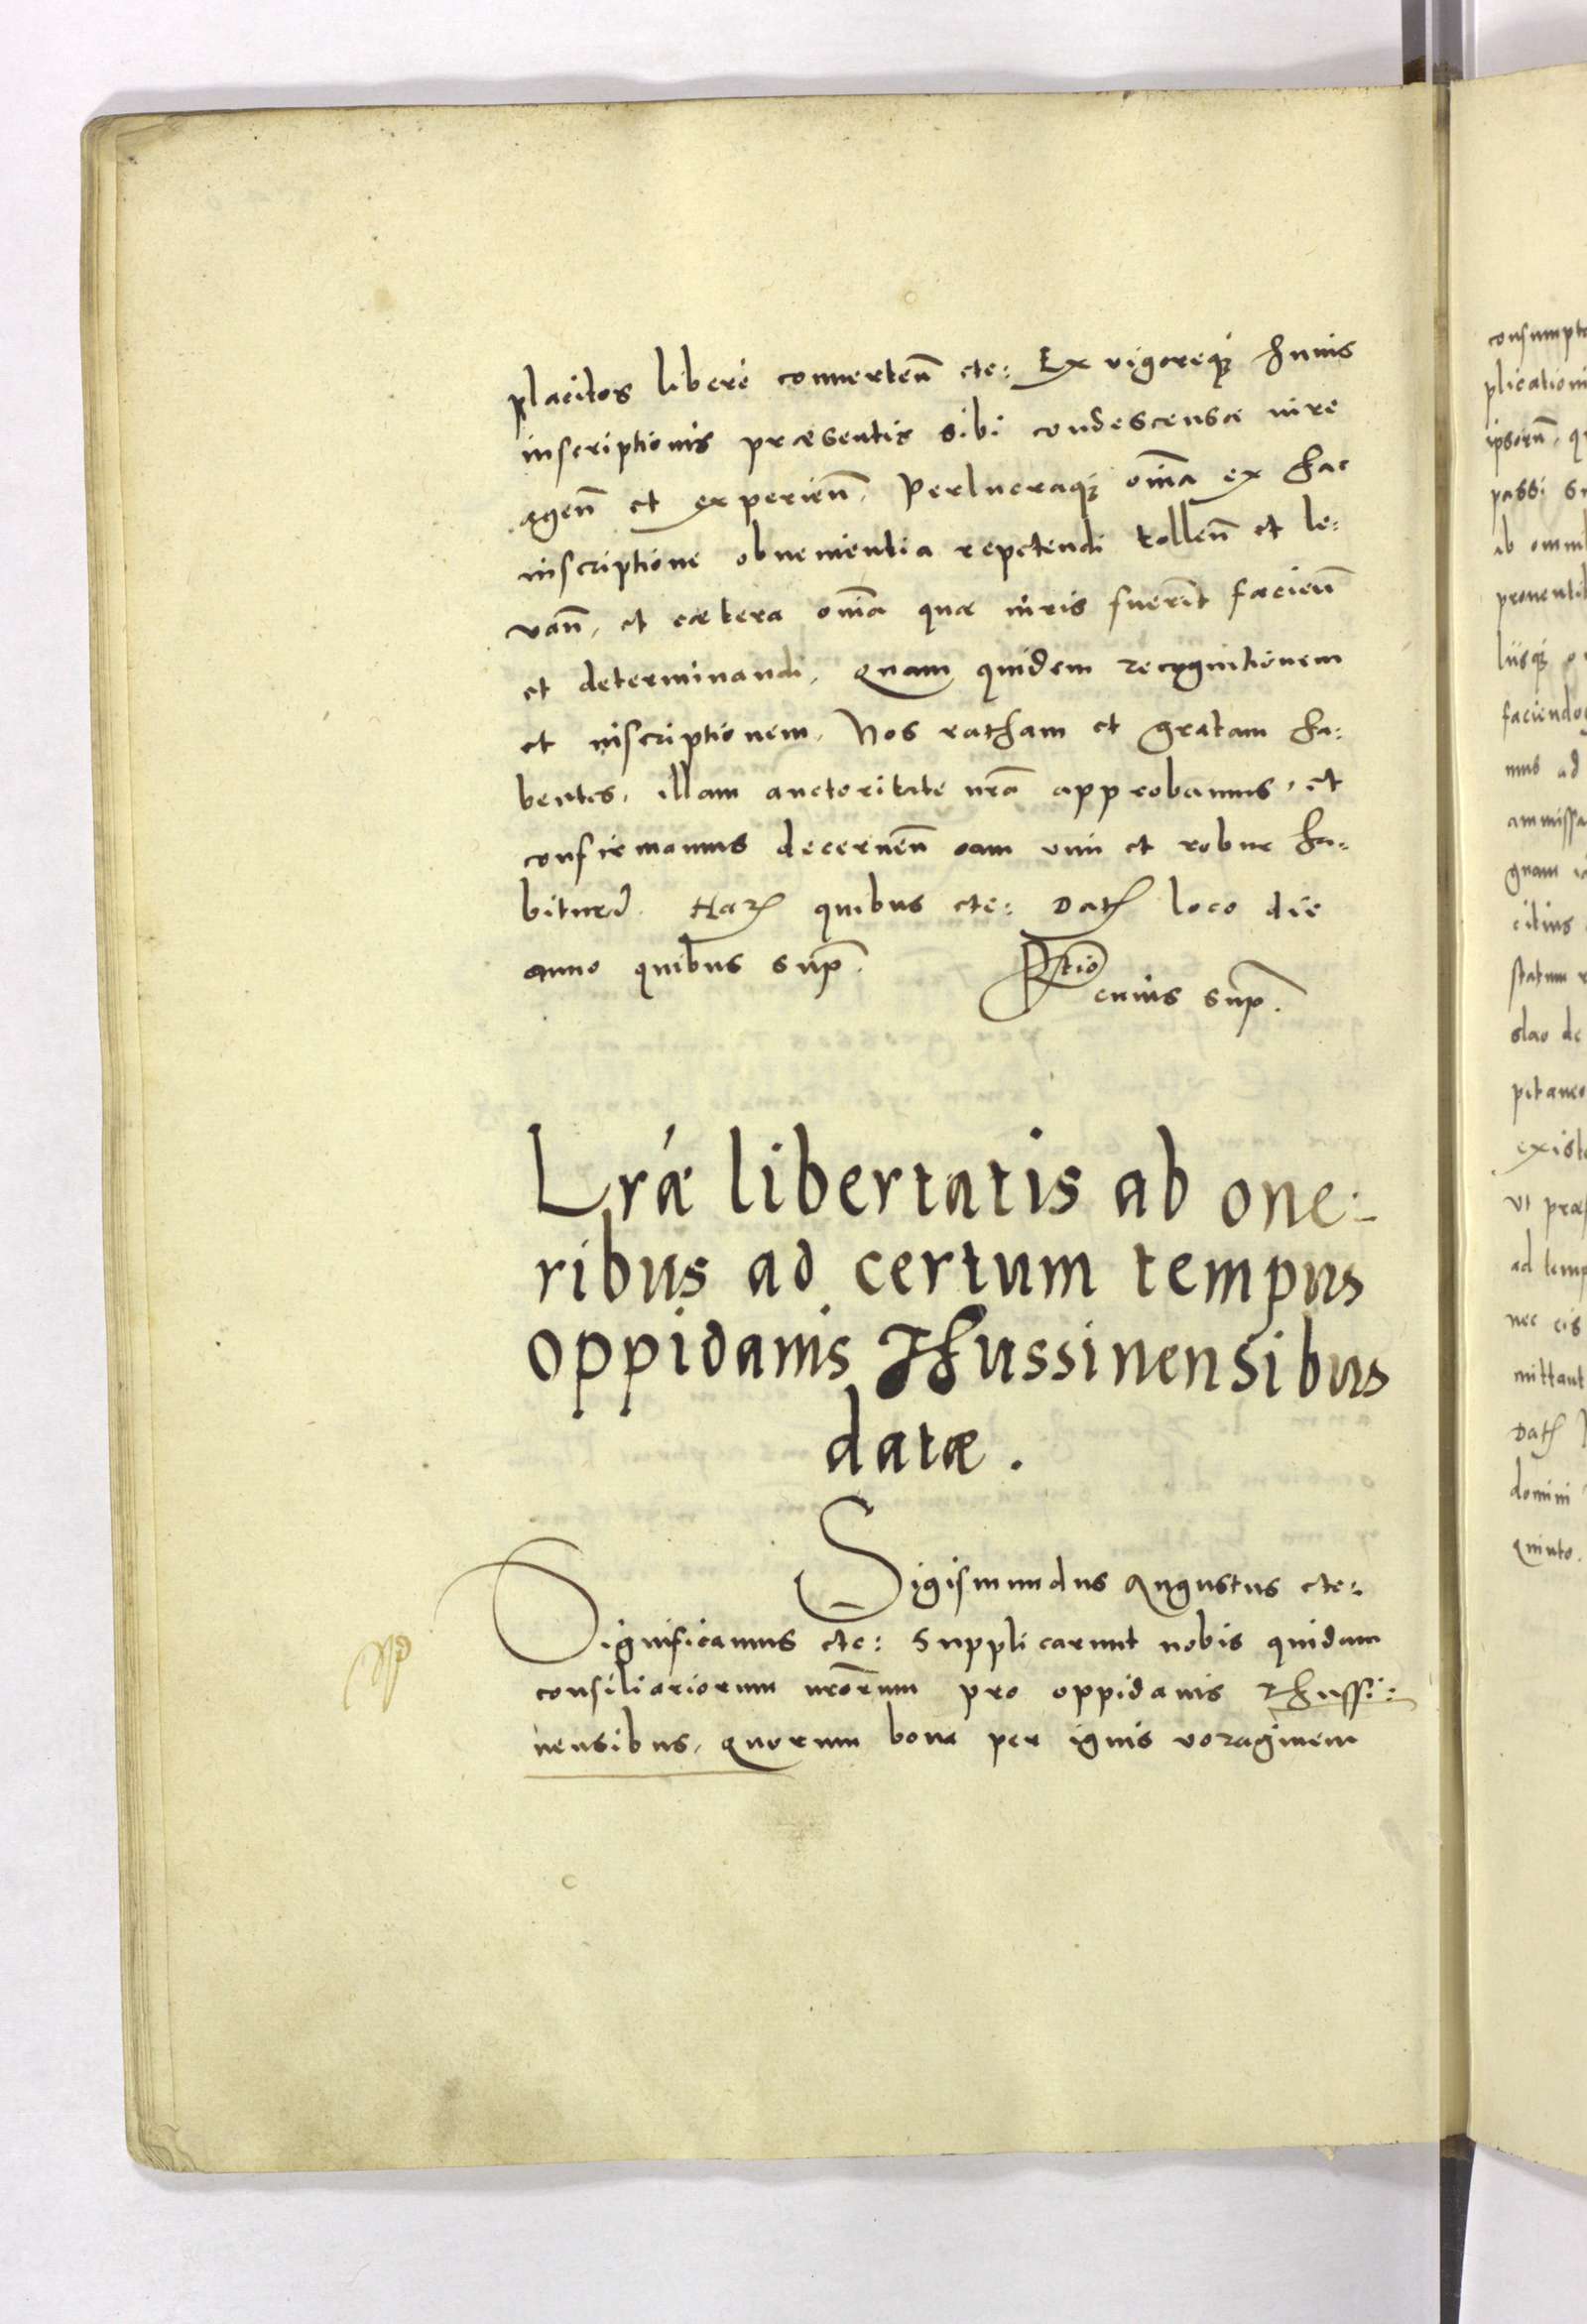 placitos libere conuerten̄ etc: Ex vigoreq̃ huius
inscriptionis præsentis sibi condescensæ iure
agen̄ et experien̄. Perlucraq̃ om̃ia ex hac
inscriptione obuenientia repetendi tollen̄ et le:
van̄, et cætera om̃ia quæ iuris fuerĩt facien̄
et determinandi, quam quidem recognitionem
et inscriptionem, Nos ratham et gratam ha:
bentes, illam auctoritate nr̃a approbamus, et
confirmamus decernen̄ eam vim et robur ha:
biturā. Harꝝ quibus etc: Datꝭ loco die
anno quibus sup̃.
R̃tio
cuius sup̃.
Lrǽ libertatis ab one:
ribus ad certum tempus
oppidanis Thussinensibus
datæ.
Sigismundus Augustus etc:
Significamus etc: Supplicarunt nobis quidam
consiliariorum nr̃orum pro oppidanis Thussi:
nensibus, quorum bona per ignis voraginem
consumpta
plication
ipsorũ, q
passi su
ab omnib
prouentib
liisq̃
faciendo
mus ad
ammissa
gnam
citius
statum
slao de
pitaneo
existe
vt præ
ad temp
nec eis
mittant
Datꝭ
domini
quinto.